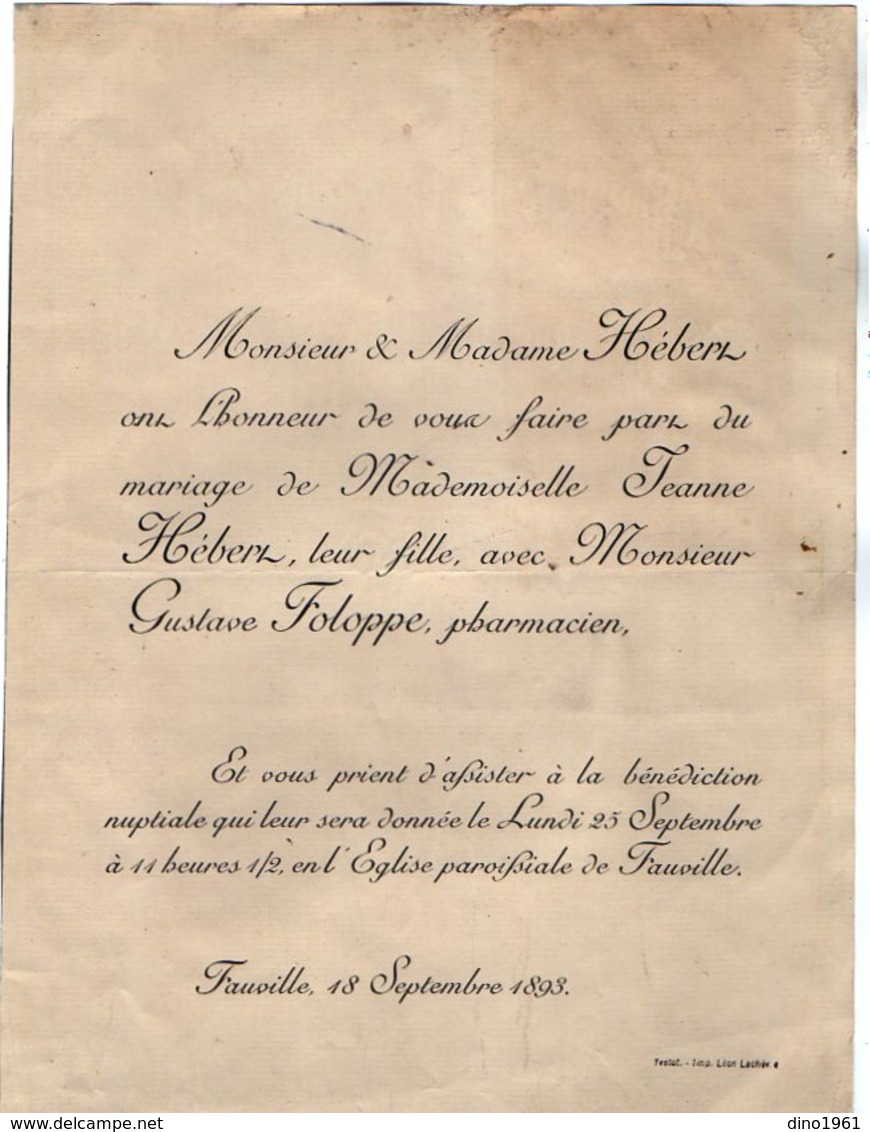 Monsieur & Madame Hébert
ont l'honneur de vous faire part du
mariage de Mademoiselle Jeanne
Hébert, leur fille, avec Monsieur
Gustave Foloppe, pharmacien,
Et vous prient d'aſsister à la bénédiction
nuptiale qui leur sera donnée le Lundi 25 Septembre
à 11 heures 1/2, en l'Eglise paroiſsiale de Fauville.
Fauville, 18 Septembre 1893.
Imp. Léon
delcampe.net
dino1961